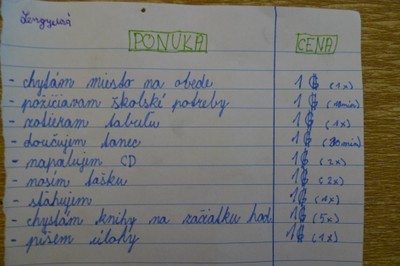 PONUKA CENA
- chytám miesto na obede 1 G (1x)
- požičiavam školské potreby 1 G (10min)
- zotieram tabuľu 1 G (1x)
- doučujem tanec 1 G (20min)
- napaľujem CD 1 G (2x)
- nosím tašku 1 G (2x)
- sťahujem 1 G
- chystám knihy na začiatku hod. 1 G (5x)
- píšem úlohy 1 G (1x)